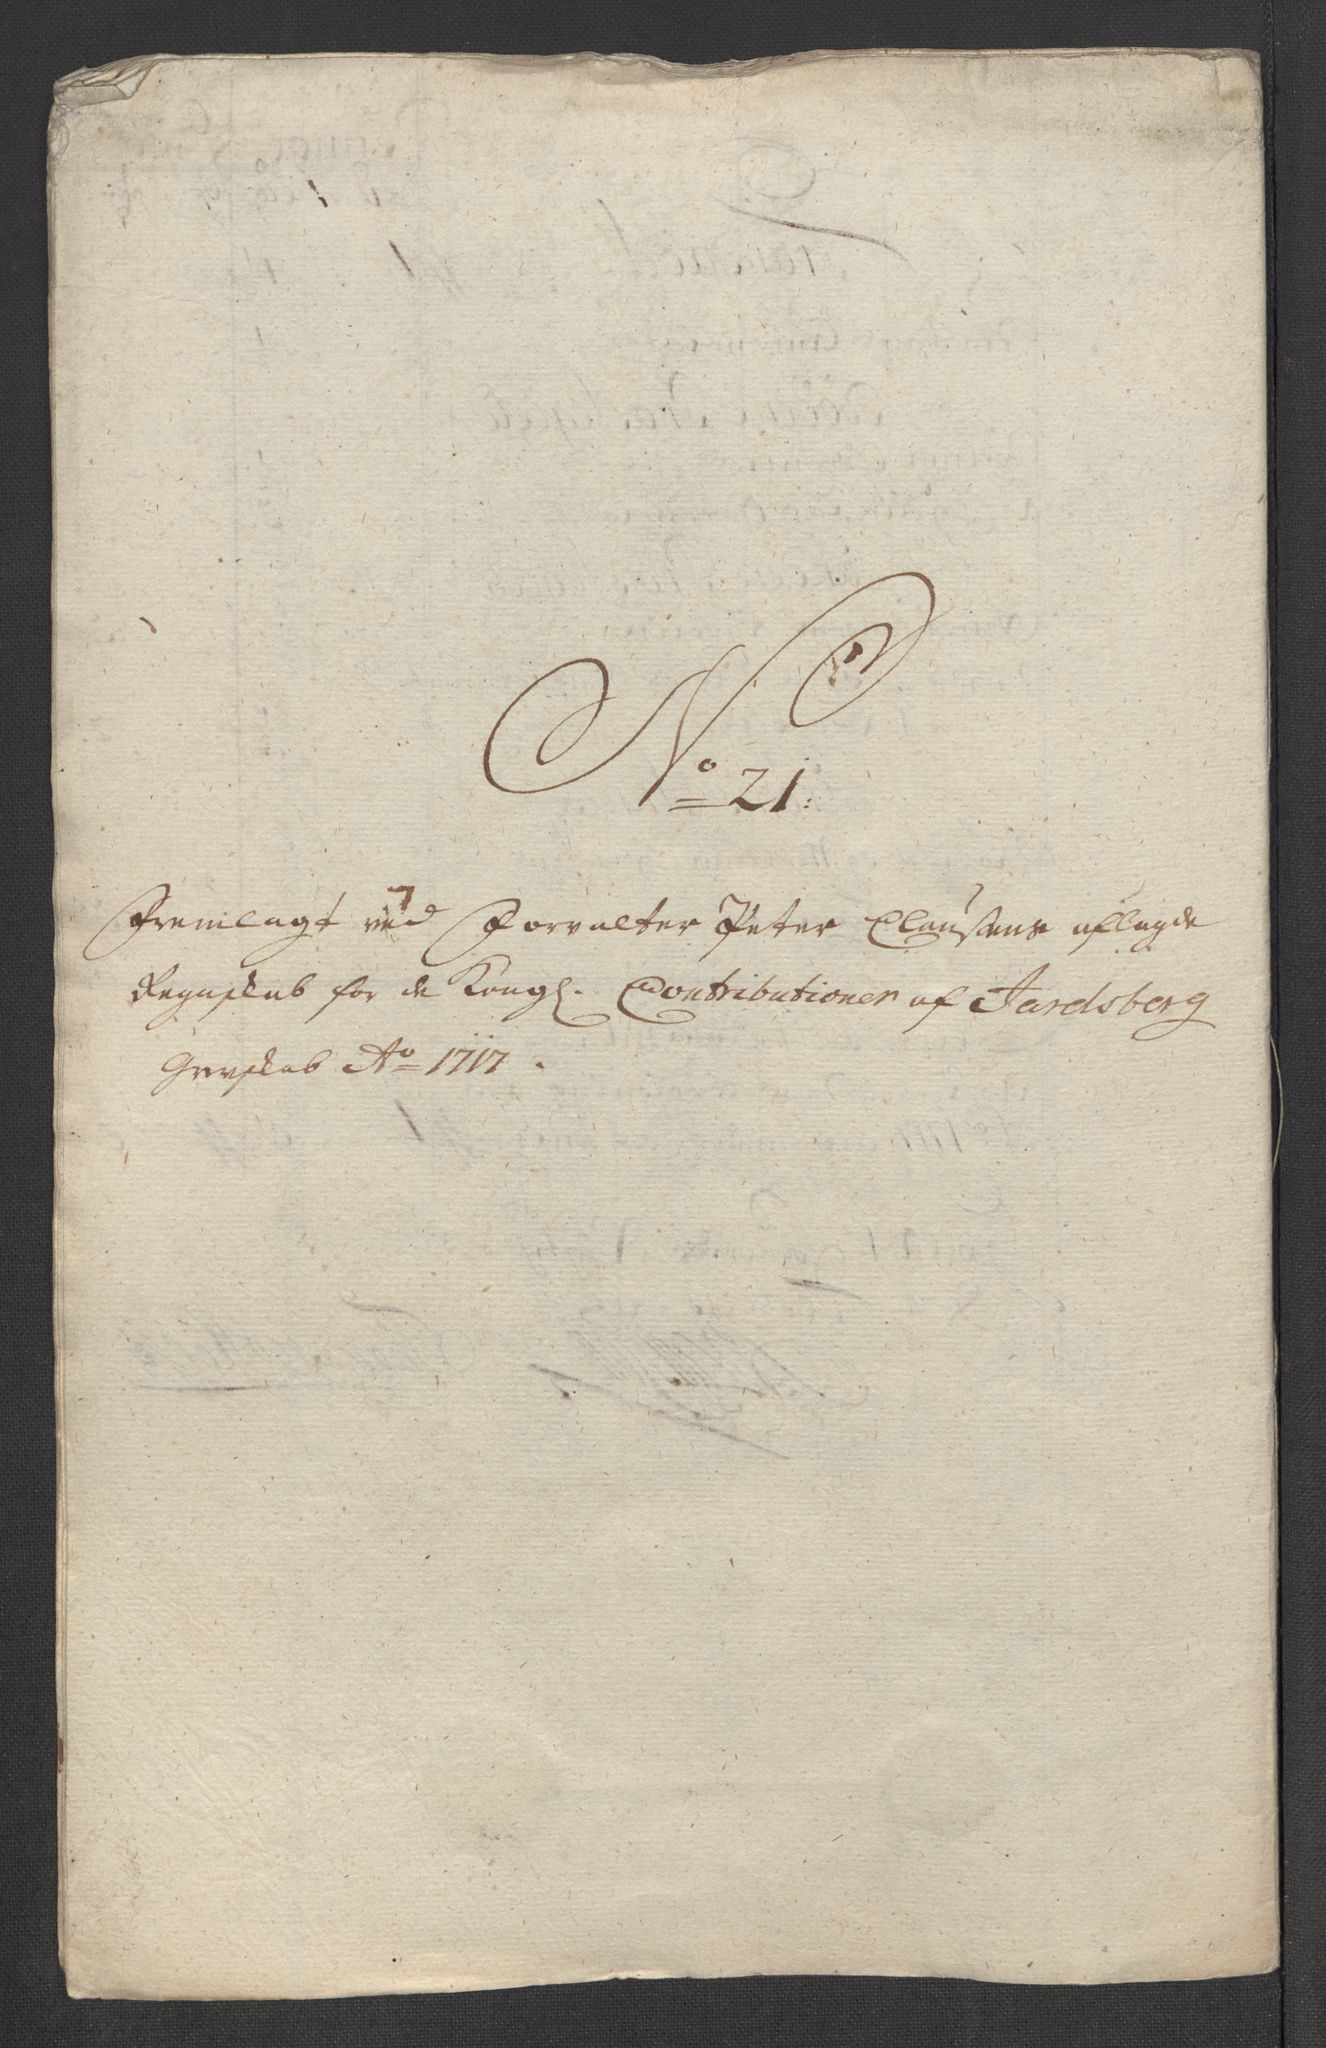 No 21:
Fremlagt ved Forvalter Peter Clausens aflagde
Regnskab for de Kongl. Contributioner af Jarlsberg
Grevskab Ao 1717.